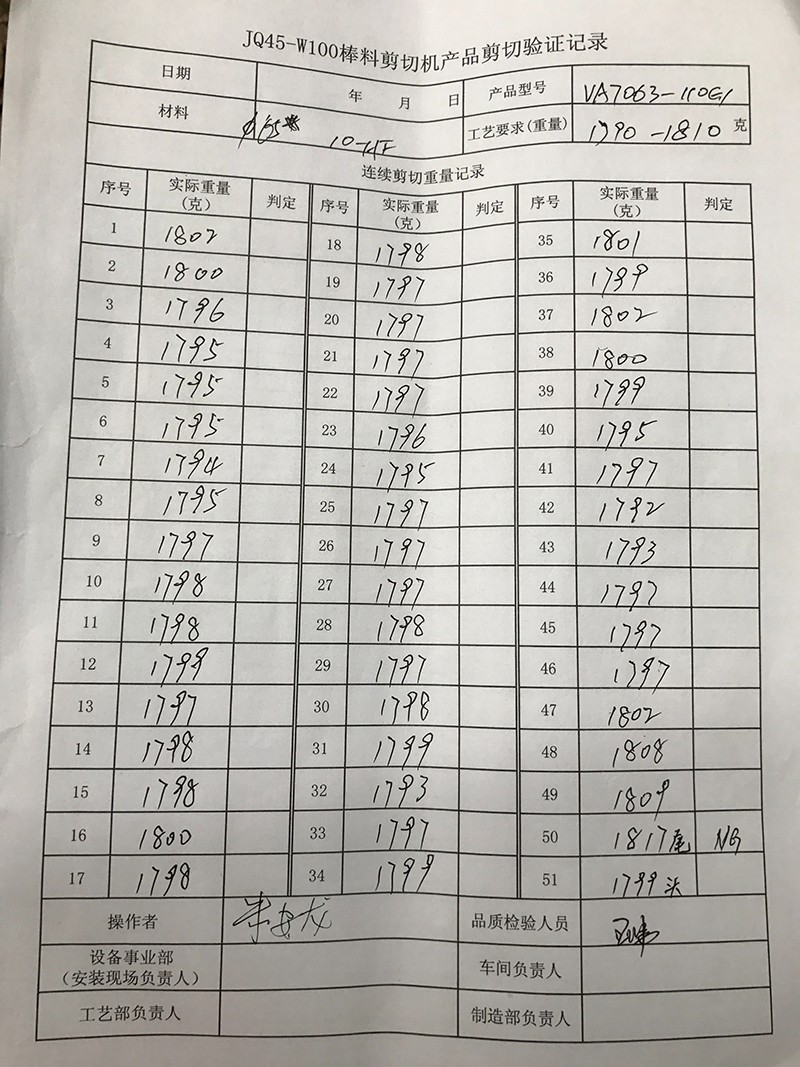 JQ45-W100棒料剪切机产品剪切验证记录
日期 年 月 日 产品型号 VA7063-110G1
材料 φ65 工艺要求(重量) 1790-1810 克
连续剪切重量记录
序号 实际重量(克) 判定 序号 实际重量(克) 判定 序号 实际重量(克) 判定
1 1802 18 1798 35 1801
2 1800 19 1797 36 1799
3 1796 20 1797 37 1802
4 1795 21 1797 38 1800
5 1795 22 1797 39 1799
6 1795 23 1796 40 1795
7 1794 24 1795 41 1797
8 1795 25 1797 42 1792
9 1797 26 1797 43 1793
10 1798 27 1797 44 1797
11 1798 28 1798 45 1797
12 1799 29 1797 46 1797
13 1797 30 1798 47 1802
14 1798 31 1799 48 1808
15 1798 32 1793 49 1809
16 1800 33 1797 50 1817尾 NG
17 1798 34 1799 51 1799头
操作者 朱安龙 品质检验人员
设备事业部 车间负责人
(安装现场负责人)
工艺部负责人 制造部负责人